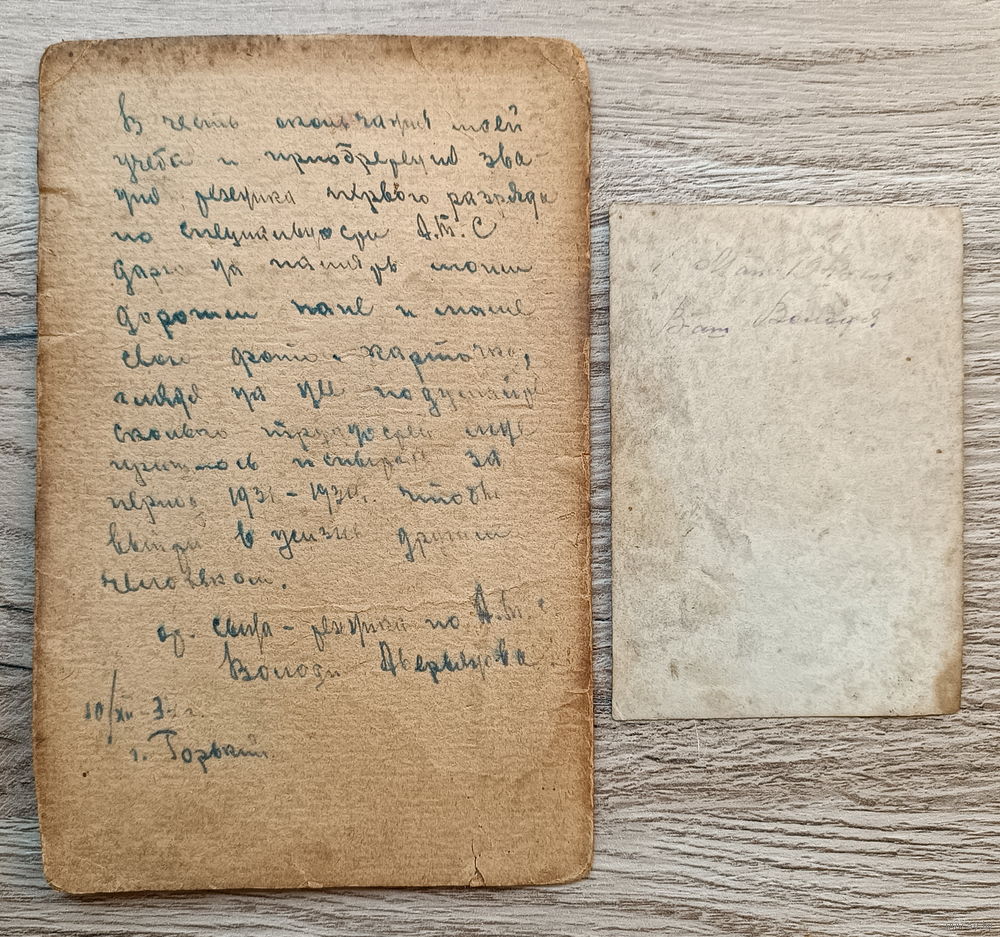 В честь окончания моей
учеба и приобретения зва-
ния техника первого разряда
по специальности А.Т.С
дарю на память моим
дорогим папе и маме
свою фото-карточку,
глядя на неё подумайте
сколько трудностей мне
пришлось испытать за
период 1931 - чтобы
выйти в жизнь другим
человеком.
от сына - техника по А.Т.С
Володи Аверьянова
10/XII-
г. Горький
Ваш Володя